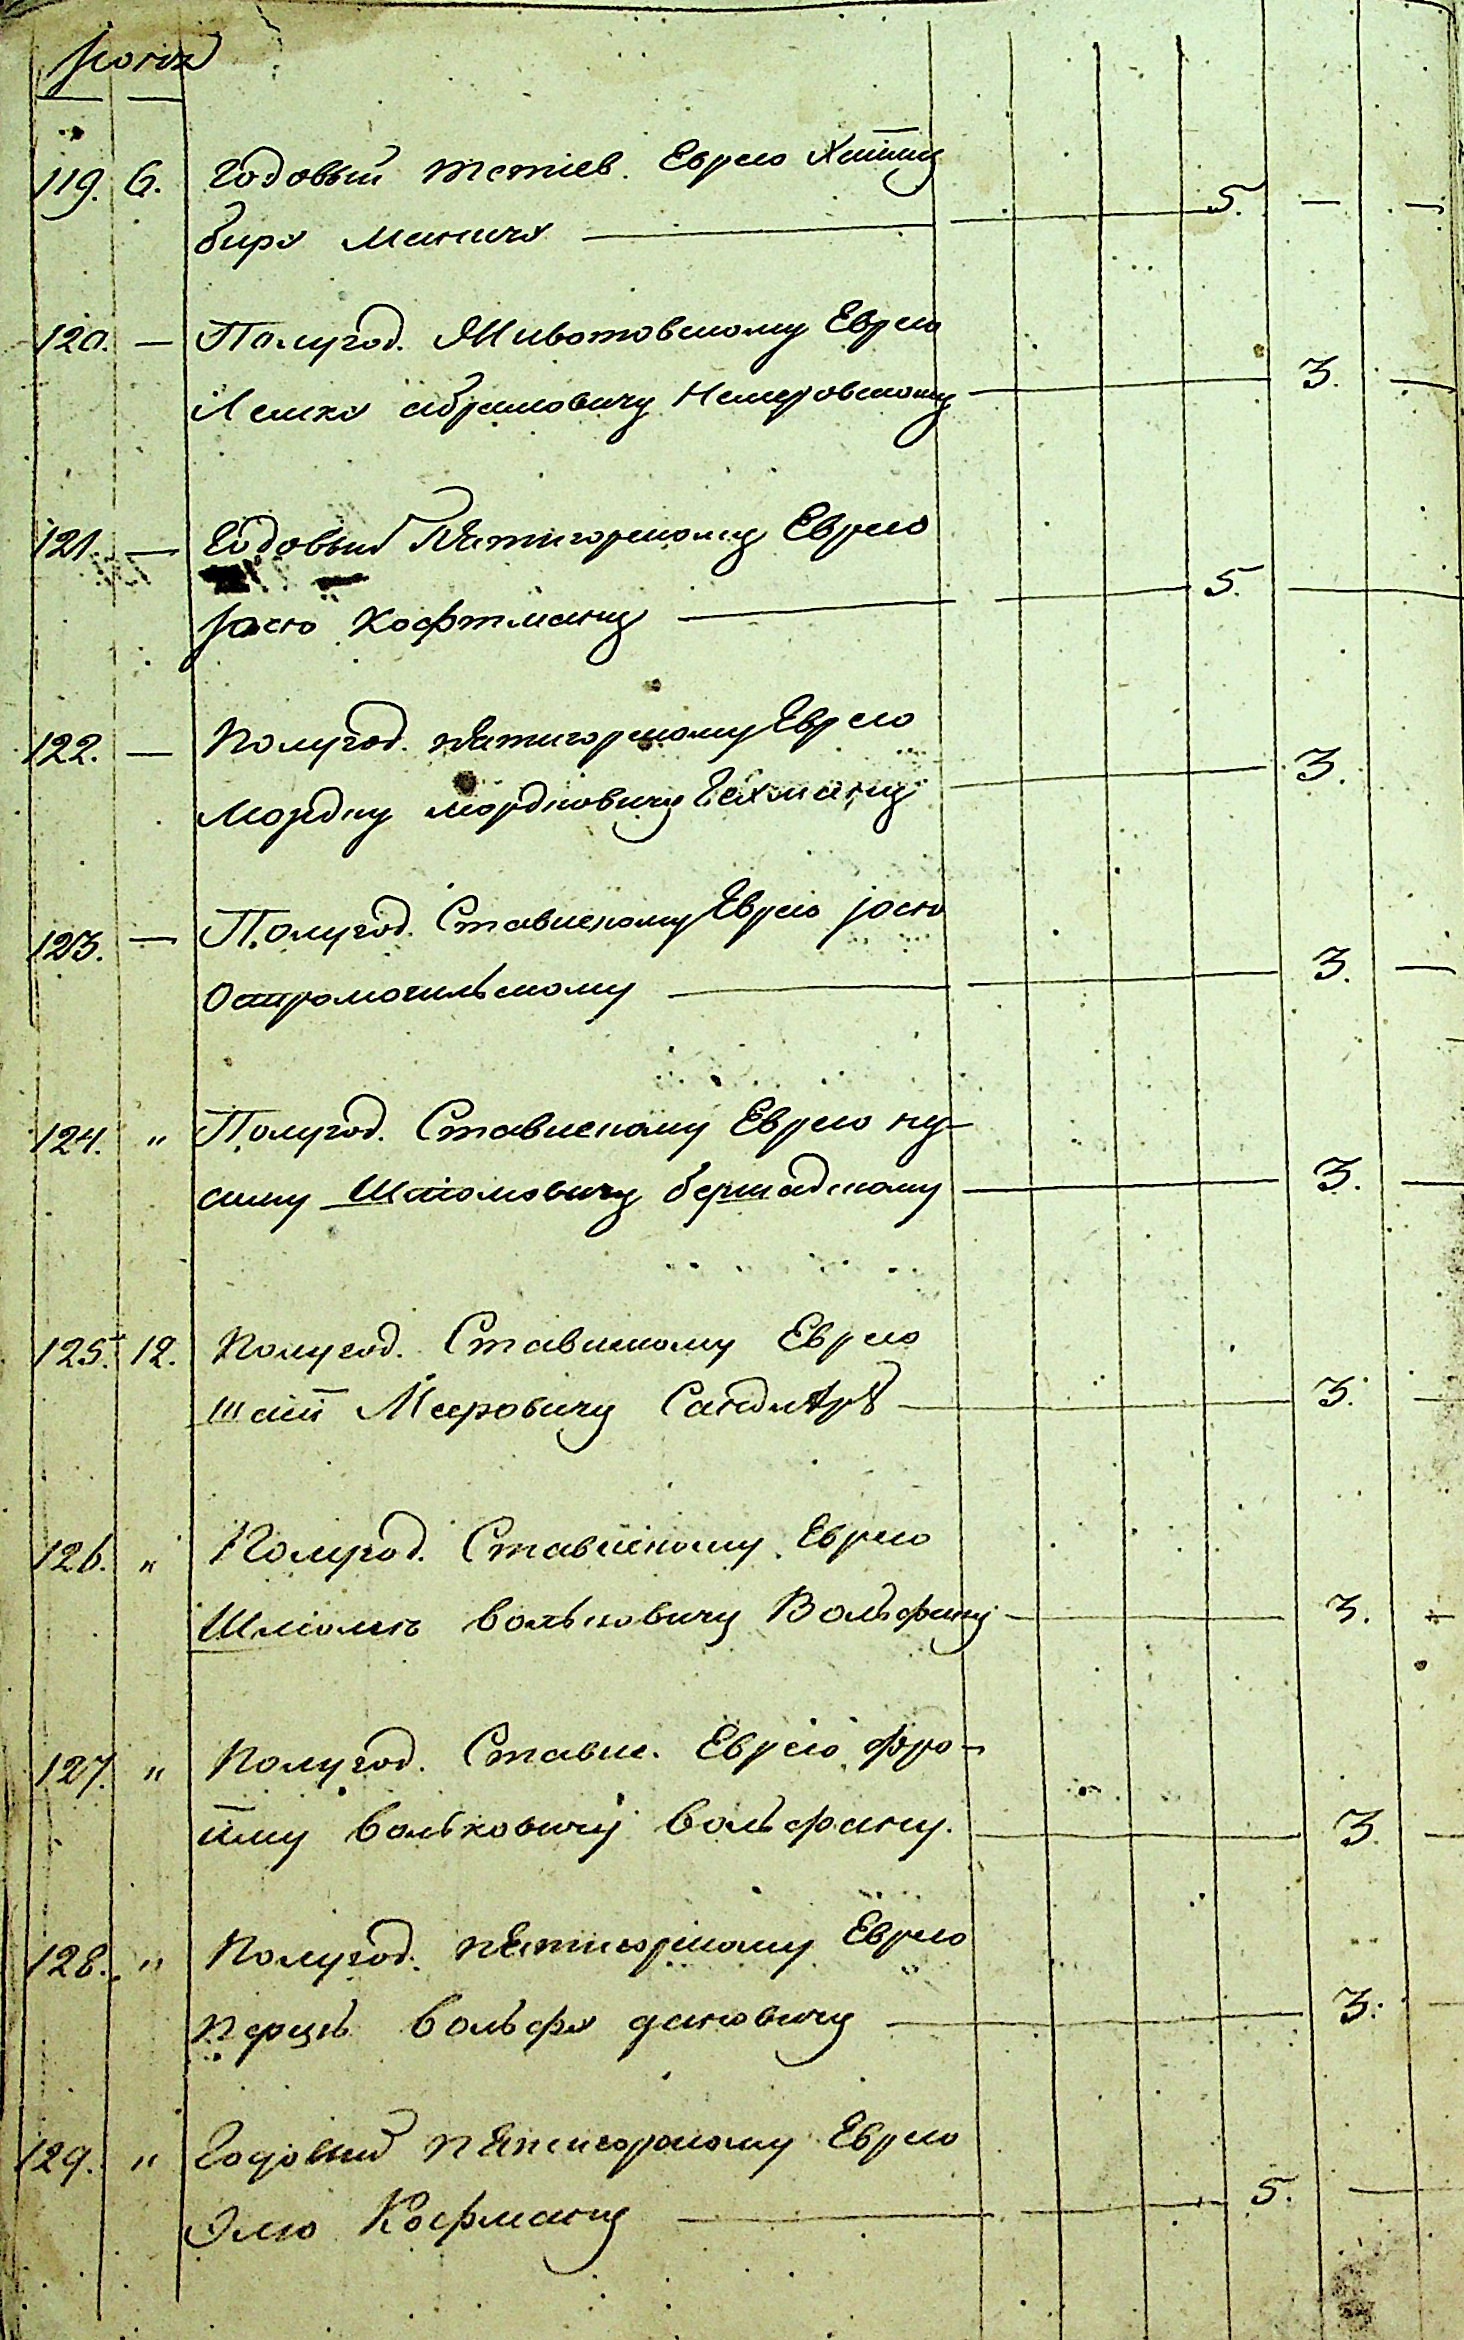 Іюня
119. 6. Годовый тетіев. Еврею Хаиму
берх Манису 5. —
120. — Полугод. Животовскому Еврею
Лейзху абрамовичу Немеровскому 3. —
121. — Годовый Пятигорскому Еврею
Іосю Кофтману 5. —
122. — Полугод. пятигорскому Еврею
Мордку мордковичу Гехтману 3.
123. — Полугод. Ставискому Еврею Іосю
Остромогильскому 3. —
124. " Полугод. Ставискому Еврею ну-
симу Шломовичу бершадскому 3. —
125. 12. Полугод. Ставискому Еврею
Шаї Мееровичу Сандлярѣ 3. —
126. " Полугод. Ставискому Еврею
Шліомѣ вольковичу Вольфину 3. —
127. " Полугод. Ставис. Еврею фро-
иму вольковичу вольфину. 3 —
128. " Полугод. пятигорскому Еврею
перцѣ вольфу дановичу 3. —
129. " Годовый пятигорскому Еврею
Элю Кофману 5. —